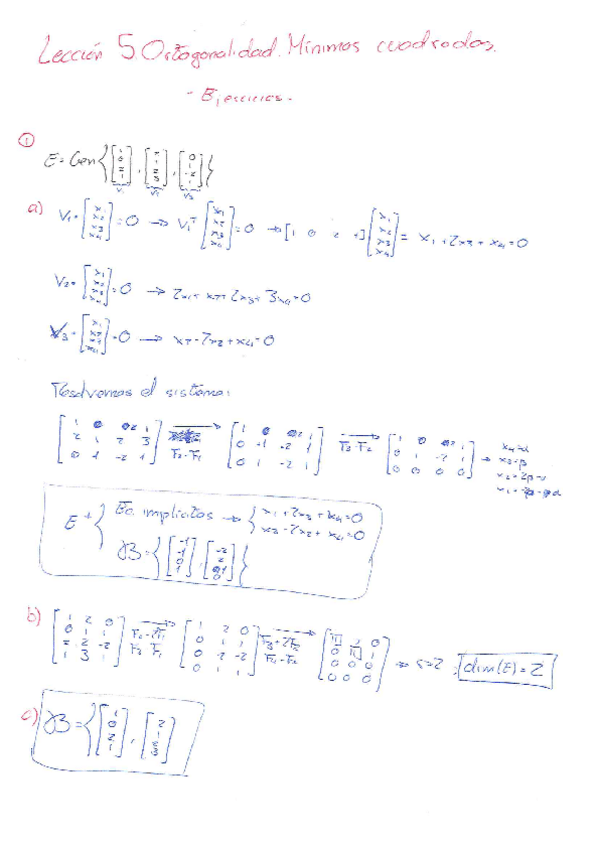 Lección 5. Ortogonalidad. Mínimos cuadrados.
- Ejercicios -
①
E = Gen{[1 0 2 1], [2 1 2 3], [0 1 -2 1]}
V1 V2 V3
a) V1 · [x1 x2 x3 x4] = 0 → V1ᵀ [x1 x2 x3 x4] = 0 → [1 0 2 1] [x1 x2 x3 x4] = x1 + 2x3 + x4 = 0
V2 · [x1 x2 x3 x4] = 0 → 2x1 + x2 + 2x3 + 3x4 = 0
V3 · [x1 x2 x3 x4] = 0 → x2 - 2x3 + x4 = 0
Resolvemos el sistema:
[1 0 2 1
2 1 2 3
0 1 -2 1] → F2-F1 [1 0 2 1
0 1 -2 1
0 1 -2 1] → F3-F2 [1 0 2 1
0 1 -2 1
0 0 0 0] → x4=α
x3=β
E⊥ { Ec. implícitas → { x1 + 2x3 + x4 = 0
x3 - 2x2 + x4 = 0
B = {[-1 -1 0 1], [-2 2 1 0]}
b) [1 2 0
0 1 1
2 2 -2
1 3 1] F3-2F1 F4-F1 → [1 2 0
0 1 1
0 -2 -2
0 1 1] F3+2F2 F4-F2 → [1 2 0
0 1 1
0 0 0
0 0 0] → r=2; dim(E) = 2
c) B = {[1 0 2 1], [2 1 2 3]}